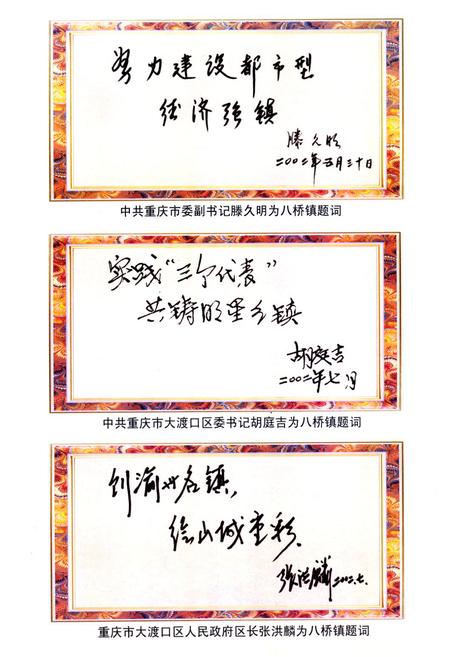 努力建设都市型
经济强镇
滕久明
二〇〇二年五月三十日
中共重庆市委副书记滕久明为八桥镇题词
实践“三个代表”
共铸明星乡镇
胡庭吉
二〇〇二年七月
中共重庆市大渡口区委书记胡庭吉为八桥镇题词
创渝州名镇，
绘山城重彩。
张洪麟 二〇〇二.七.
重庆市大渡口区人民政府区长张洪麟为八桥镇题词